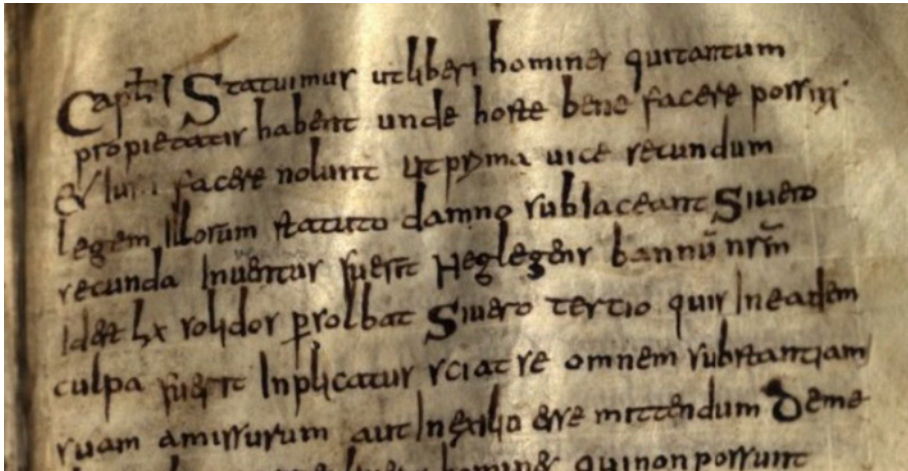 Captł I Statuimus ut liberi homines qui tantum
propietatis habent unde hoste bene facere possint
et iussi facere nolunt ut pryma uice secundum
legem illorum statuto damno subiaceant Si uero
secunda Inuentus fuerit Neglegens bannū nrm̄
Id est lx solidos p̱solbat Si uero tertio quis In eadem
culpa fuerit Inplicatus sciat se omnem substantiam
suam amissurum aut In exilio esse mittendum De me
homines qui non possunt